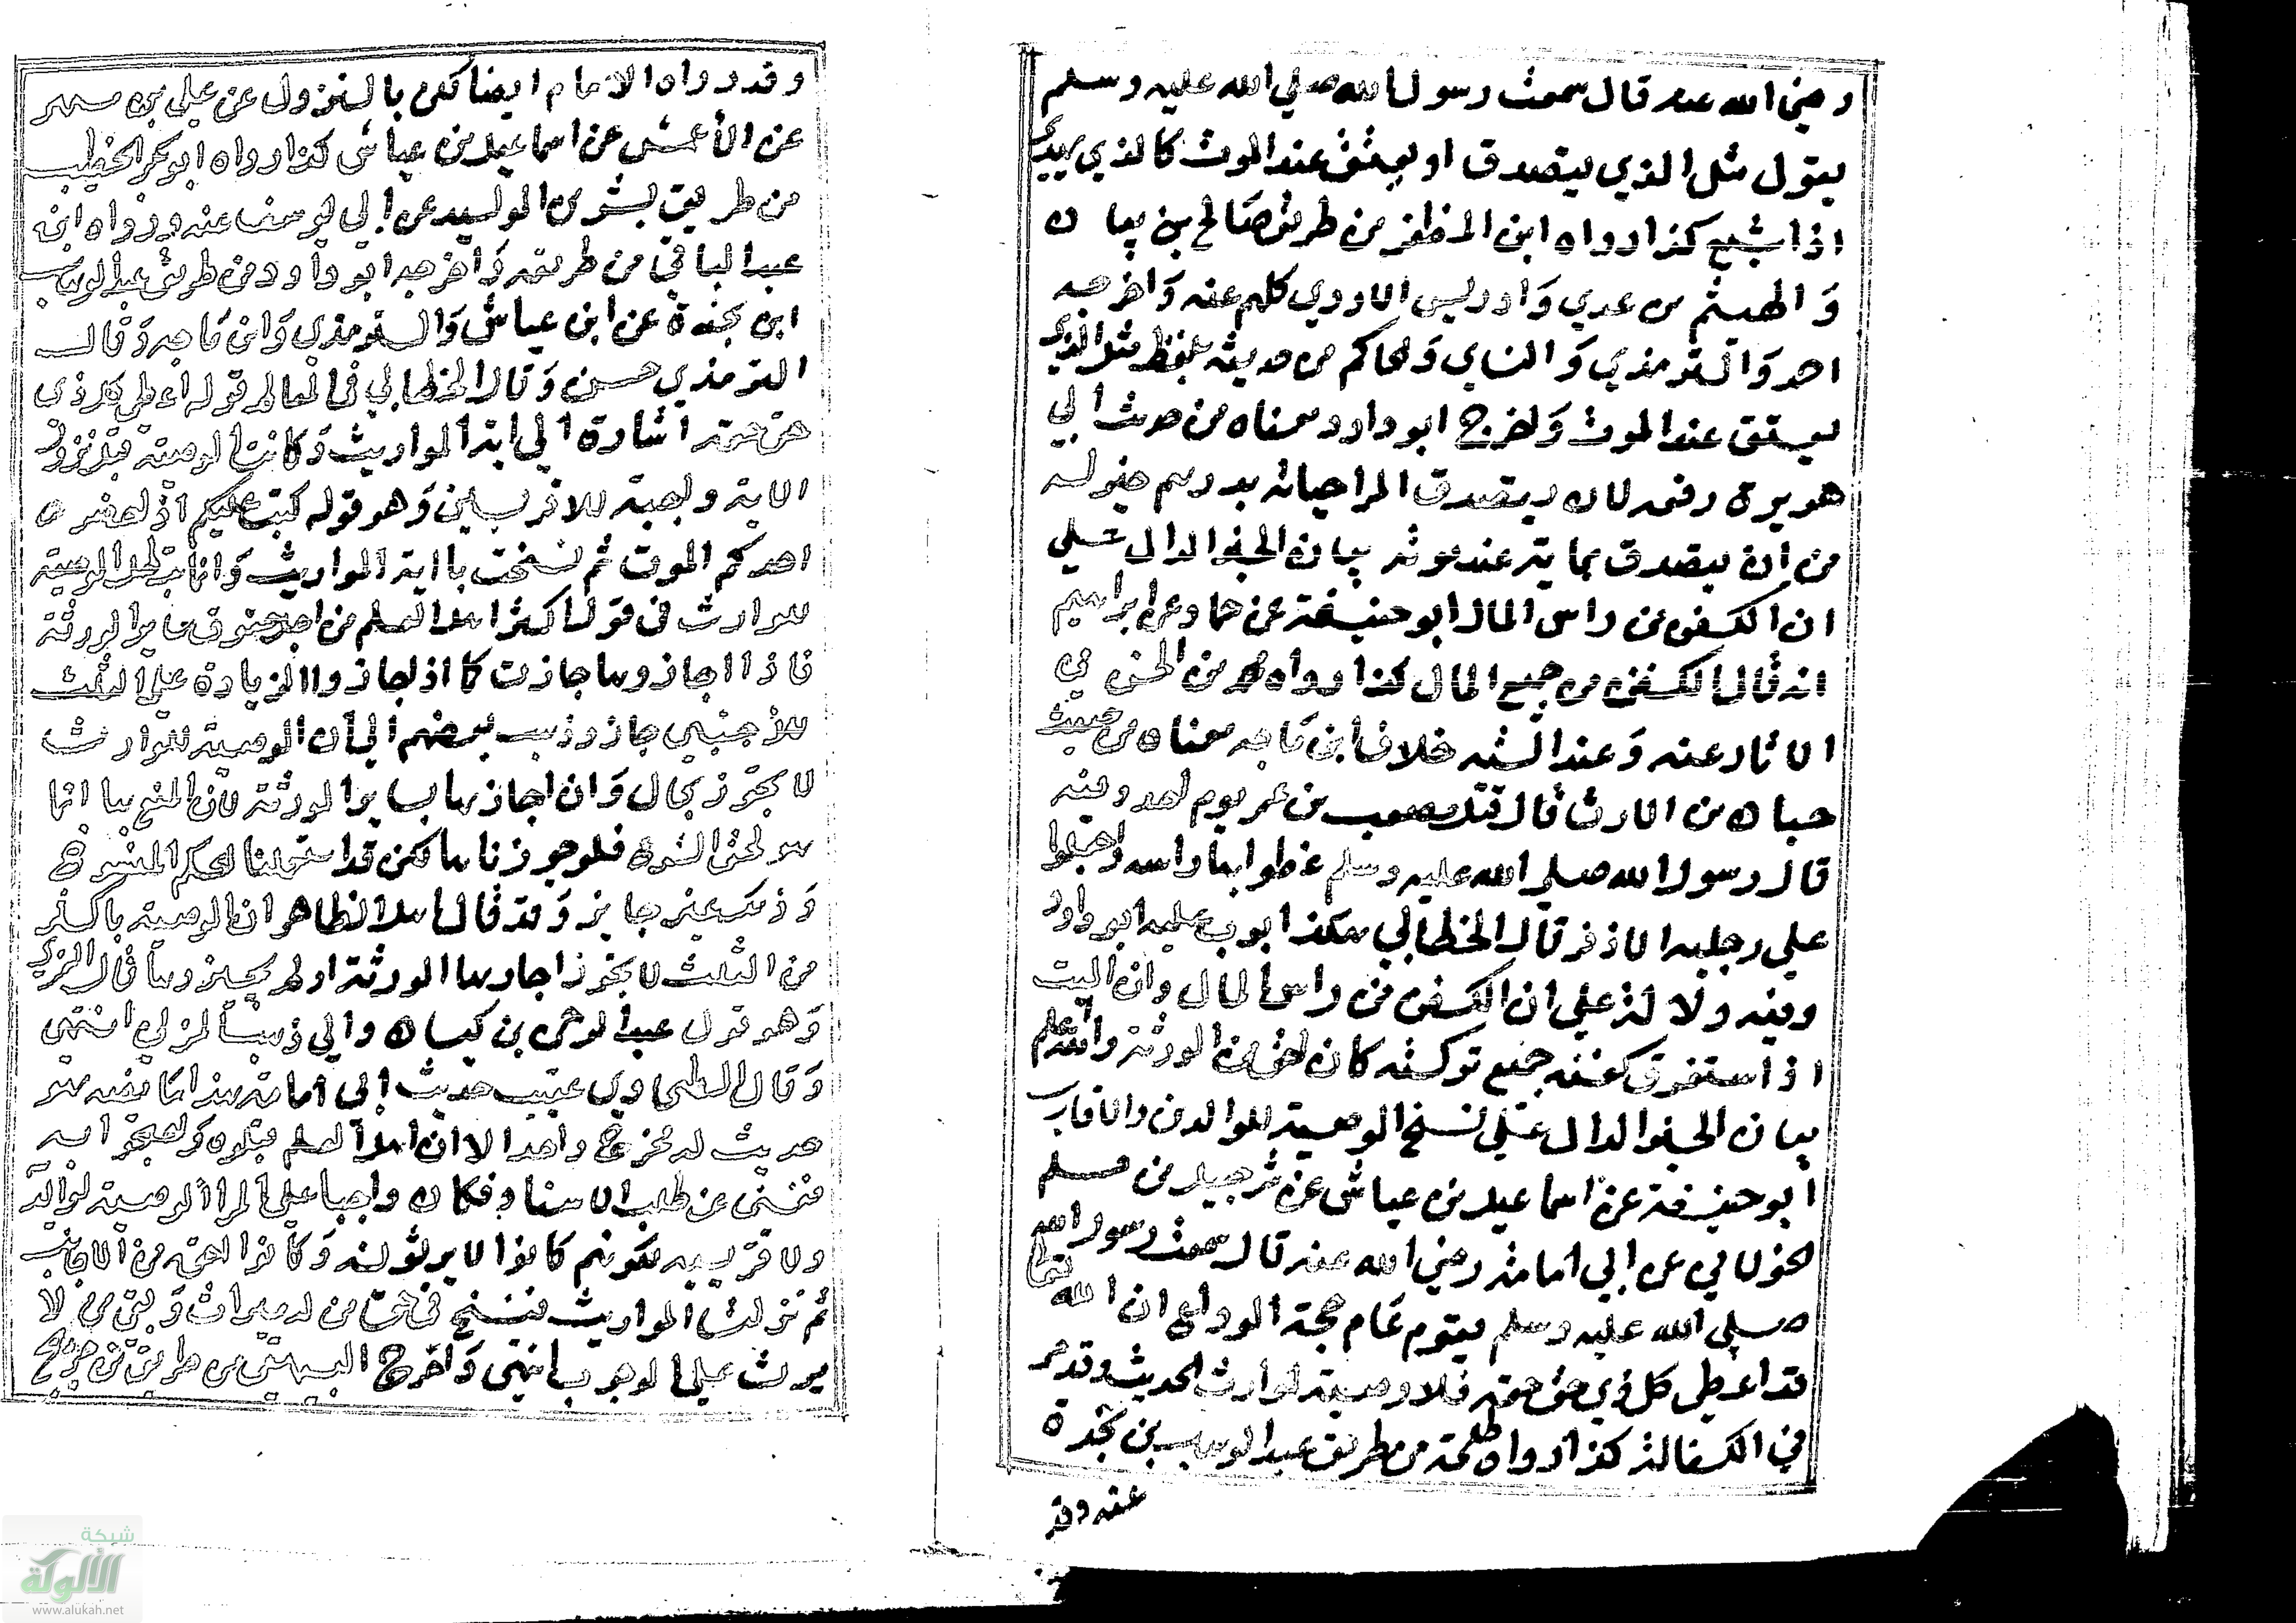 رضي الله عنه قال سمعت رسول الله صلي الله عليه وسلم
يقول مثل الذي يتصدق او يعتق عند الموت كالذي يهدي
اذا شبع كذا رواه ابن المظفر من طريق صالح بن بيان
وَالهيثم بن عدي وَادريس الاودي كلهم عنه وَاخرجه
احمد وَالترمذي وَالنساي وَالحاكم من حديثه بلفظ مثل الذي
يعتق عند الموت وَاخرج ابو داود معناه من حديث ابي
هريرة رفعه لان يتصدق المرا حياته بدرهم خير له
من ان يتصدق بماية عند موته بيان الخبر الدال علي
ان الكفن من راس المال ابو حنيفة عن حماد عن ابراهيم
انه قال الكفن من جميع المال كذا رواه محمد بن الحسن في
الاثار عنه وَعند الستة خلاف ابن مَاجه معناه من حديث
خباب بن الارت قال قتل مصعب بن عمير يوم احد وفيه
قال رسول الله صلي الله عليه وسلم غطوا بها راسه وَاجعلوا
علي رجليه الاذخر قال الخطابي هكذا بوب عليه ابو داود
وفيه دلالة علي ان الكفن من راس المال وان الميت
اذا استغرق كفنه جميع تركته كان احق من الورثة والله اعلم
بيان الخبر الدال علي نسخ الوصية للوالدين والاقارب
ابو حنيفة عن اسماعيل بن عياش عن شرحبيل بن مسلم
الخولاني عن ابي امامة رضي الله عنه قال سمعت رسول الله
صلي الله عليه وسلم يقوم عَام حجة الوداع ان الله تعالي
قد اعطي كل ذي حق حقه فلا وصية لوارث الحديث وقد مر
في الكفالة كذا رواه طلحة من طريق عبد الوهاب بن نجدة
عنه وقد
وقد رواه الامام ايضا لكن بالنزول عن علي بن مسهر
عن الأعمش عن اسماعيل بن عياش كذا رواه ابو بكر الخطيب
من طريق بشر بن الوليد عن ابي يوسف عنه ورواه ابن
عبد الباقي من طريقه وَاخرجه ابو داود من طريق عبد الوهاب
ابن نجدة عن ابن عياش وَالترمذي وَابن مَاجه وَقال
الترمذي حسن وَقال الخطابي في المعالم قوله اعطي كل ذي
حق حقه اشارة الي اية المواريث وَكانت الوصية قبل نزول
الاية واجبة للاقربين وَهو قوله كتب عليكم اذا حضر
احدكم الموت ثم نسخت باية المواريث وَانما تبطل الوصية
للوارث في قول اكثر اهل العلم من اجل حقوق سَاير الورثة
فاذا اجازوها جازت كما اذا اجازوا الزيادة علي الثلث
للأجنبي جاز وذهب بعضهم الي أن الوصية للوارث
لا تجوز بحال وَان اجازها ساير الورثة لأن المنع بها انما
هو لحق الشرع فلو جوزناها لكن قد استعملنا الحكم المنسوخ
وَذلك غير جايز وَقد قال اهل الظاهر ان الوصية باكثر
من الثلث لا تجوز اجازها الورثة اولم يجيزوها قال المزني
وَهو قول عبد الرحمن بن كيسان والي ذهب المزني انتهي
وَقال الطحاوي عقيب حديث ابي امامة هذا مَا نصه هو
حديث له مخرج واحد الا ان اهل العلم قبلوه وَاحتجوا به
فغني عن طلب الاسناد فكان واجبا علي المرا الوصية لوالديه
ولاقربيه لكونهم كانوا لا يرثونه وَكانوا احق من الاجانب
ثم نزلت المواريث فنسخ في حق من له ميراث وَبقي من لا
يرث علي الوجوب انتهي وَاخرج البيهقي من طريق ابن جريج
شبكة
الألوكة
www.alukah.net